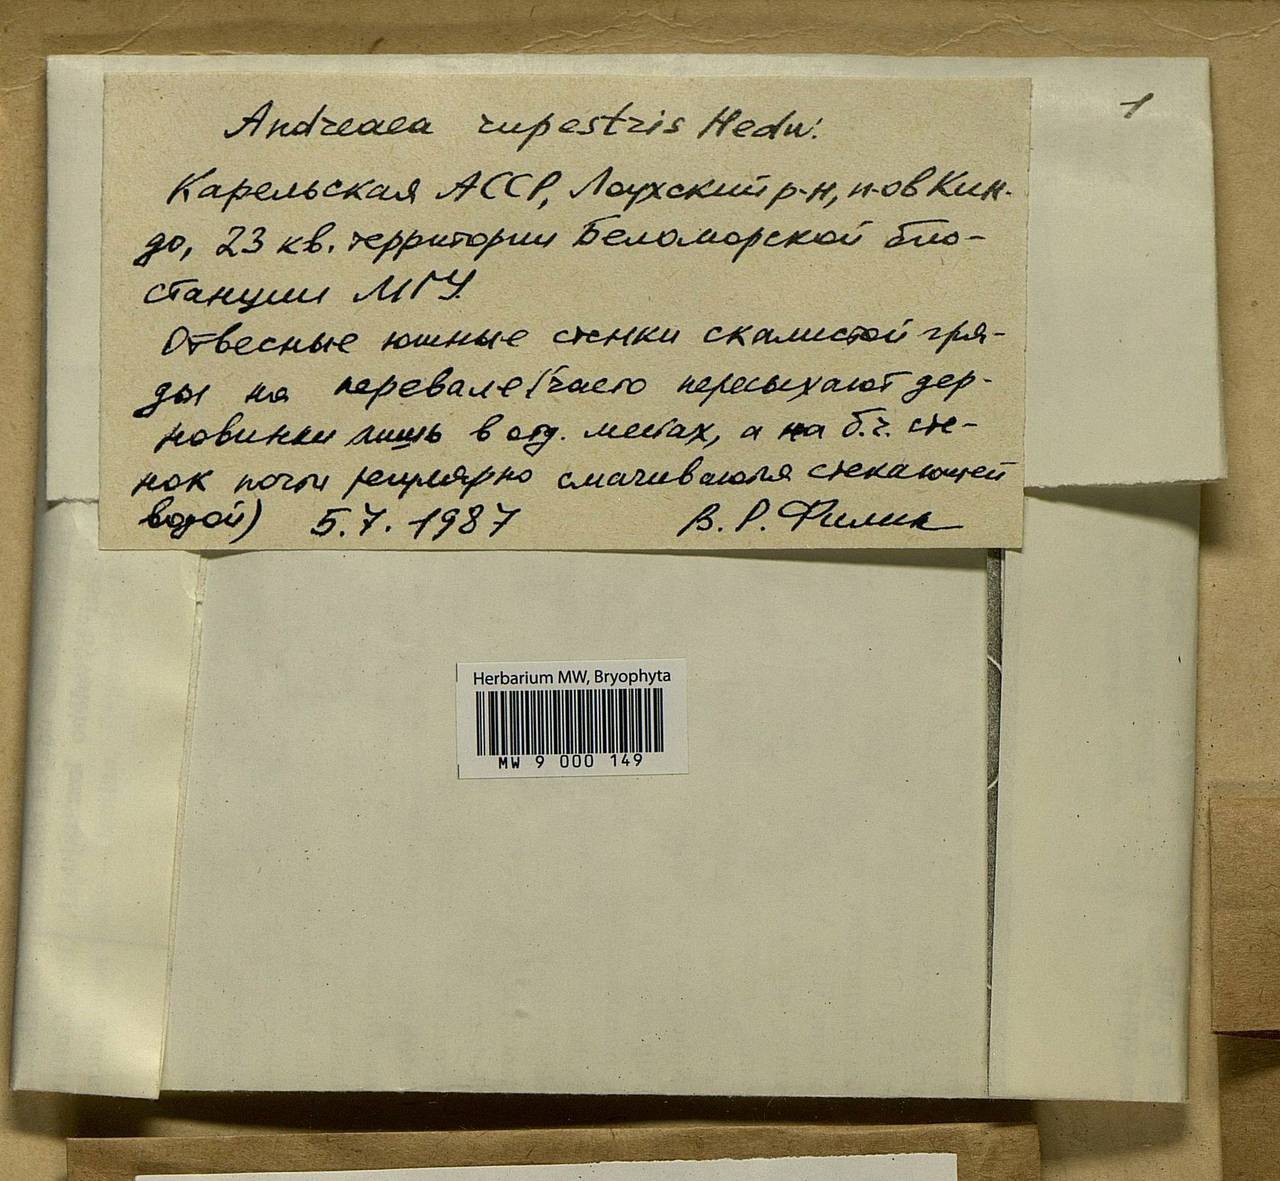 Andreaea rupestris Hedw.
1
Карельская АССР, Лоухский р-н, п-ов Кин-
до, 23 кв. территории Беломорской био-
станции МГУ.
Отвесные южные стенки скалистой гря-
ды на перевале (часто пересыхают дер-
новинки лишь в отд. местах, а на б.ч. сте-
нок почти регулярно смачиваются стекающей
водой) 5.7.1987 В. Р. Филин
Herbarium MW, Bryophyta
MW 9 000 149